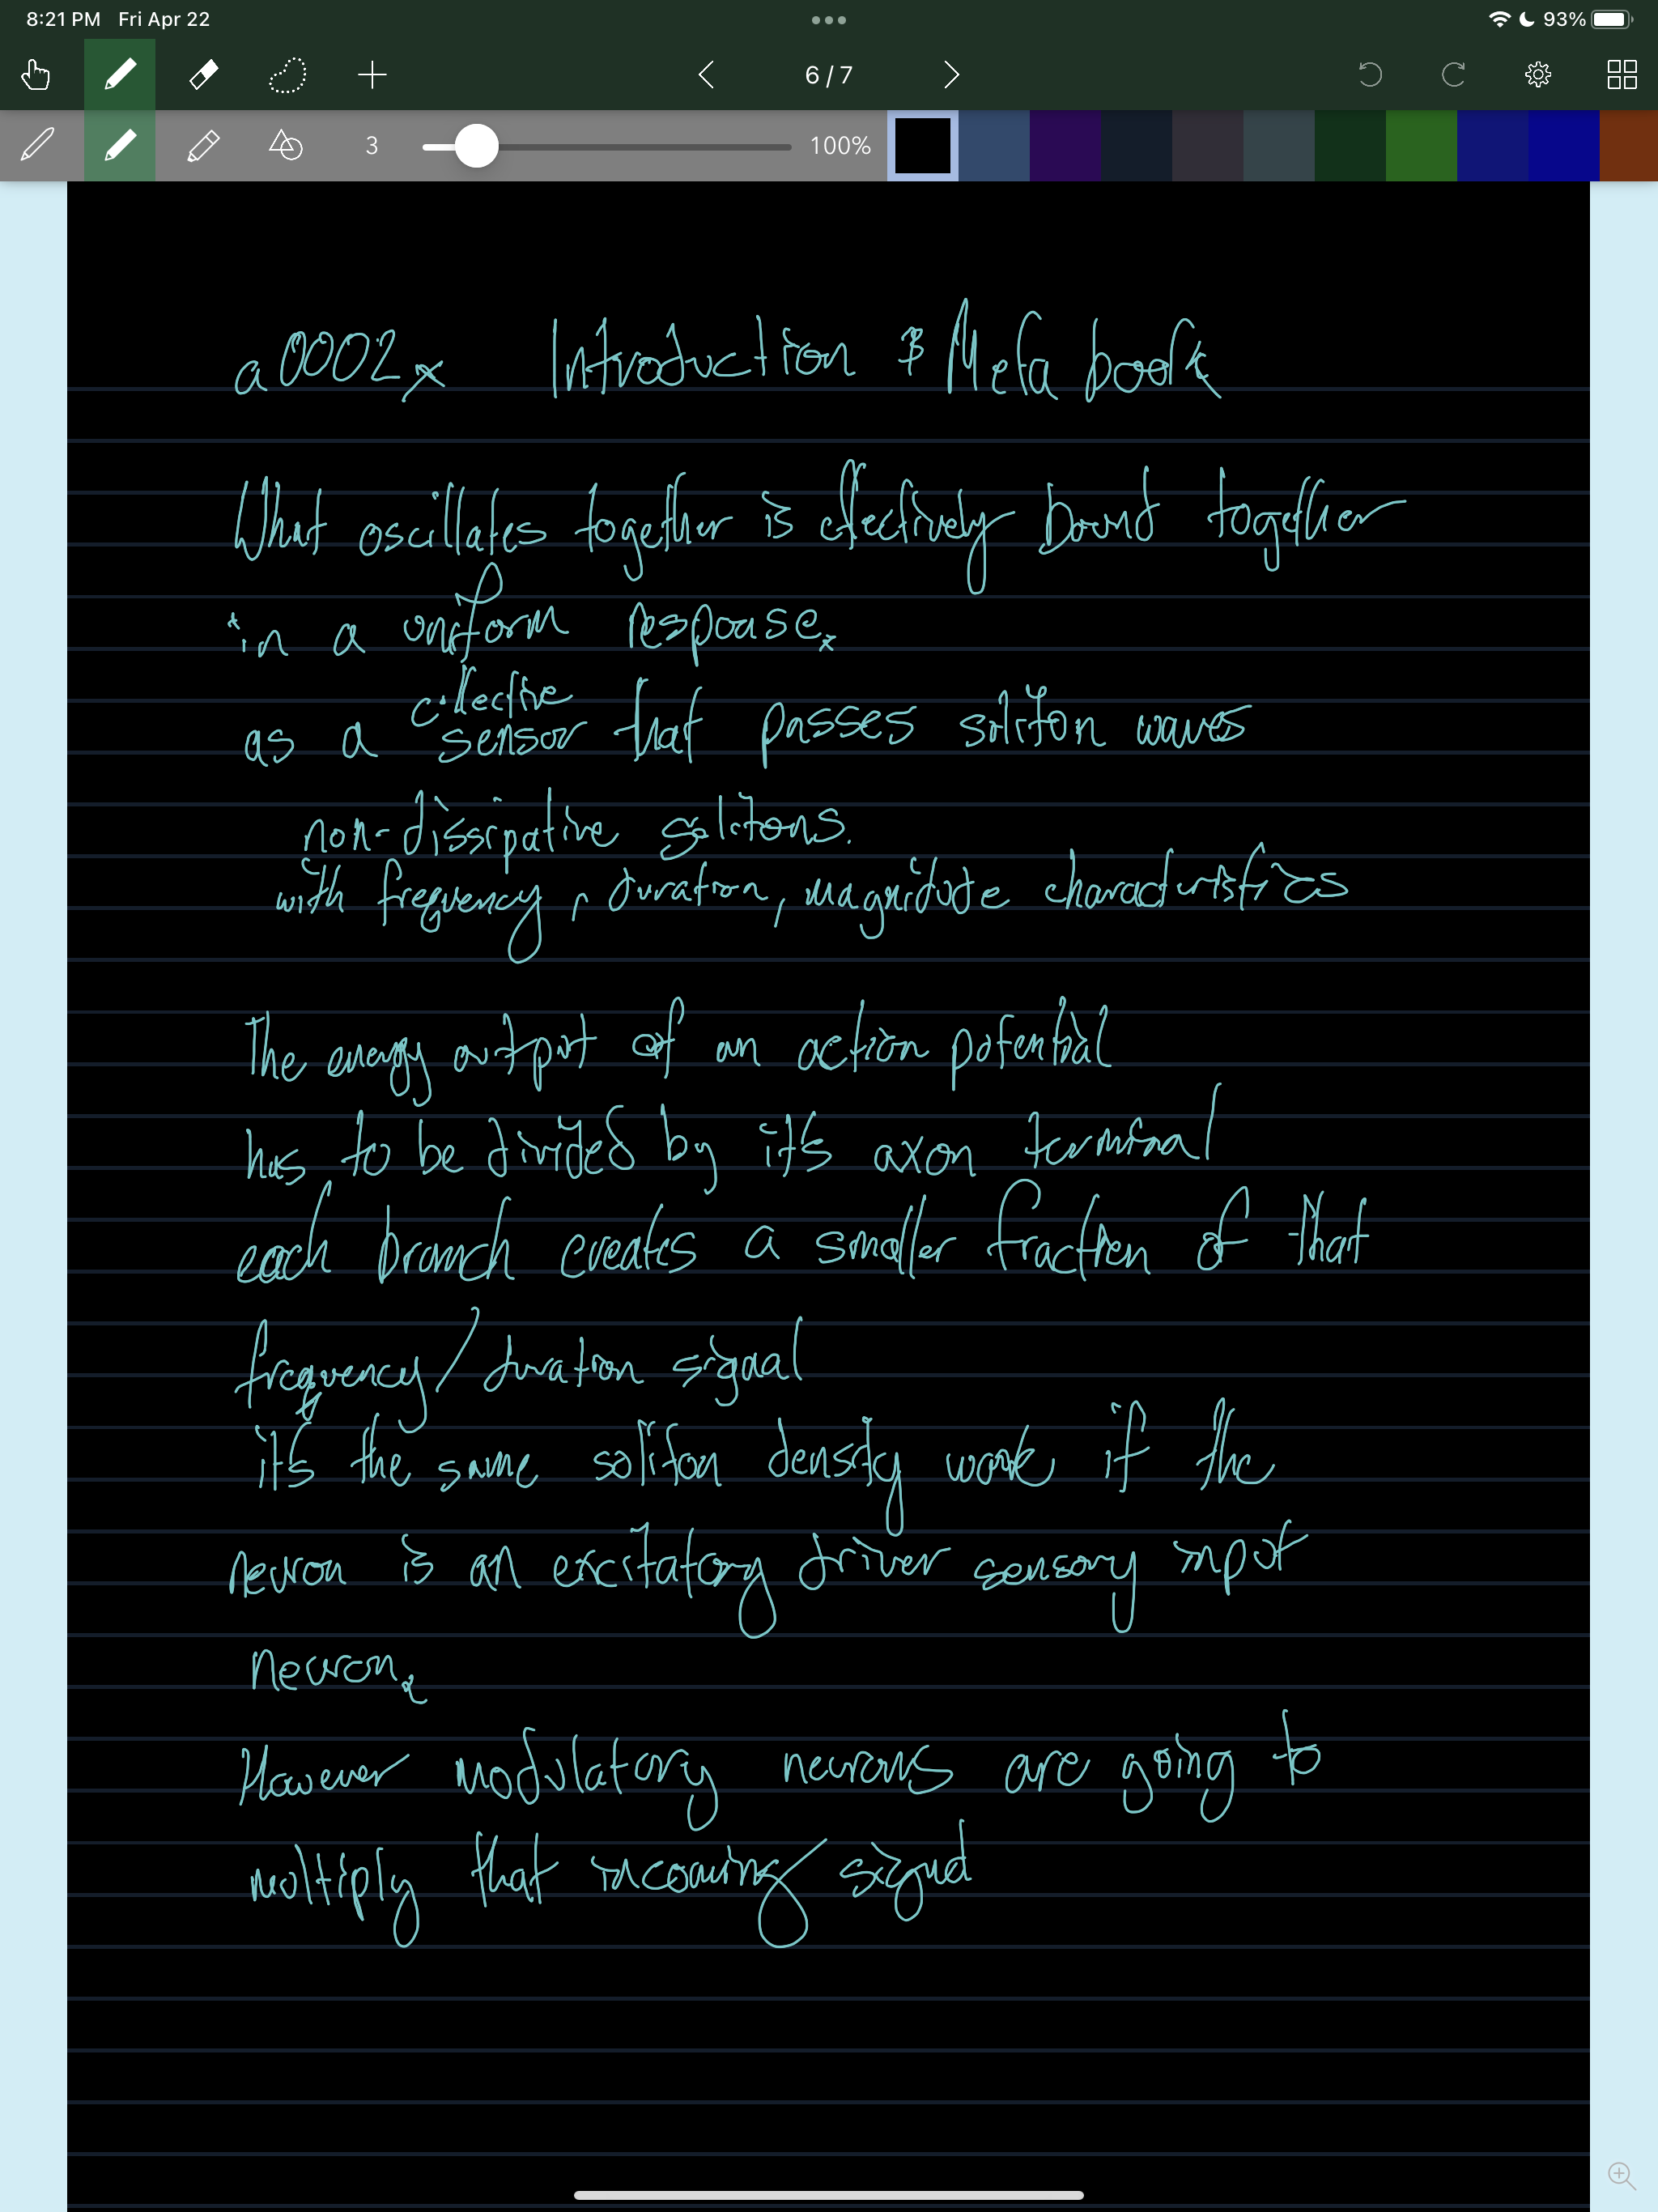 8:21 PM Fri Apr 22
93%
6/7
3
100%
a0002x Introduction & Meta book
What oscillates together is effectively bound together
in a uniform response.
as a collective sensor that passes soliton waves
non-dissipative solitons.
with frequency, duration, magnitude characteristics
The energy output of an action potential
has to be divided by it's axon terminal
each branch creates a smaller fraction of that
frequency/duration signal
it's the same soliton density if the
neuron is an excitatory driver sensory input
neuron.
However modulatory neurons are going to
multiply that incoming signal